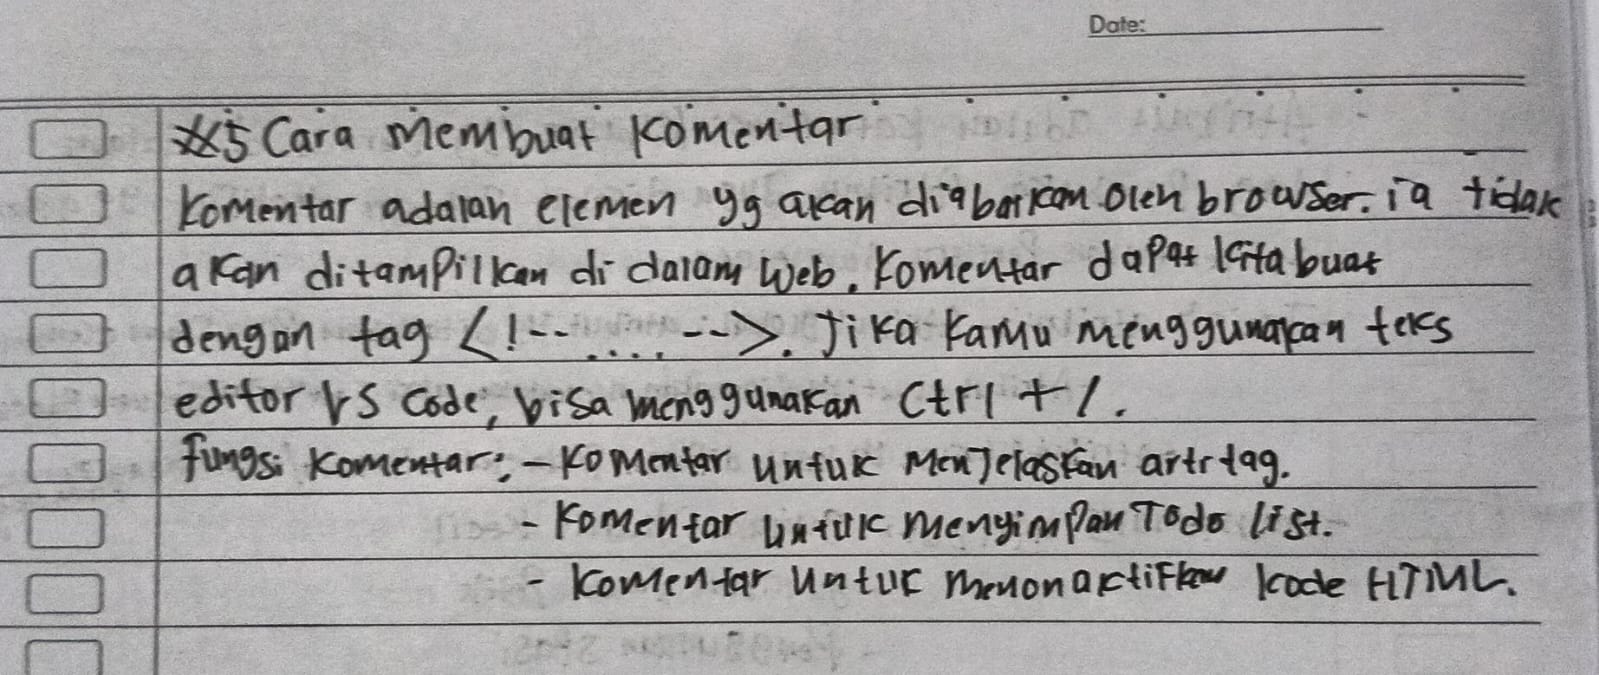 Date:
5 Cara Membuat Komentar
Komentar adalah elemen yg akan diabaikan oleh browser. ia tidak
akan ditampilkan di dalam Web. Komentar dapat kita buat
dengan tag <!-- ..... -->. Jika kamu menggunakan teks
editor VS Code, bisa menggunakan Ctrl + /.
fungsi Komentar: - Komentar untuk Menjelaskan tag.
- Komentar untuk menyimpan Todo list.
- Komentar untuk menonaktifkan kode HTML.